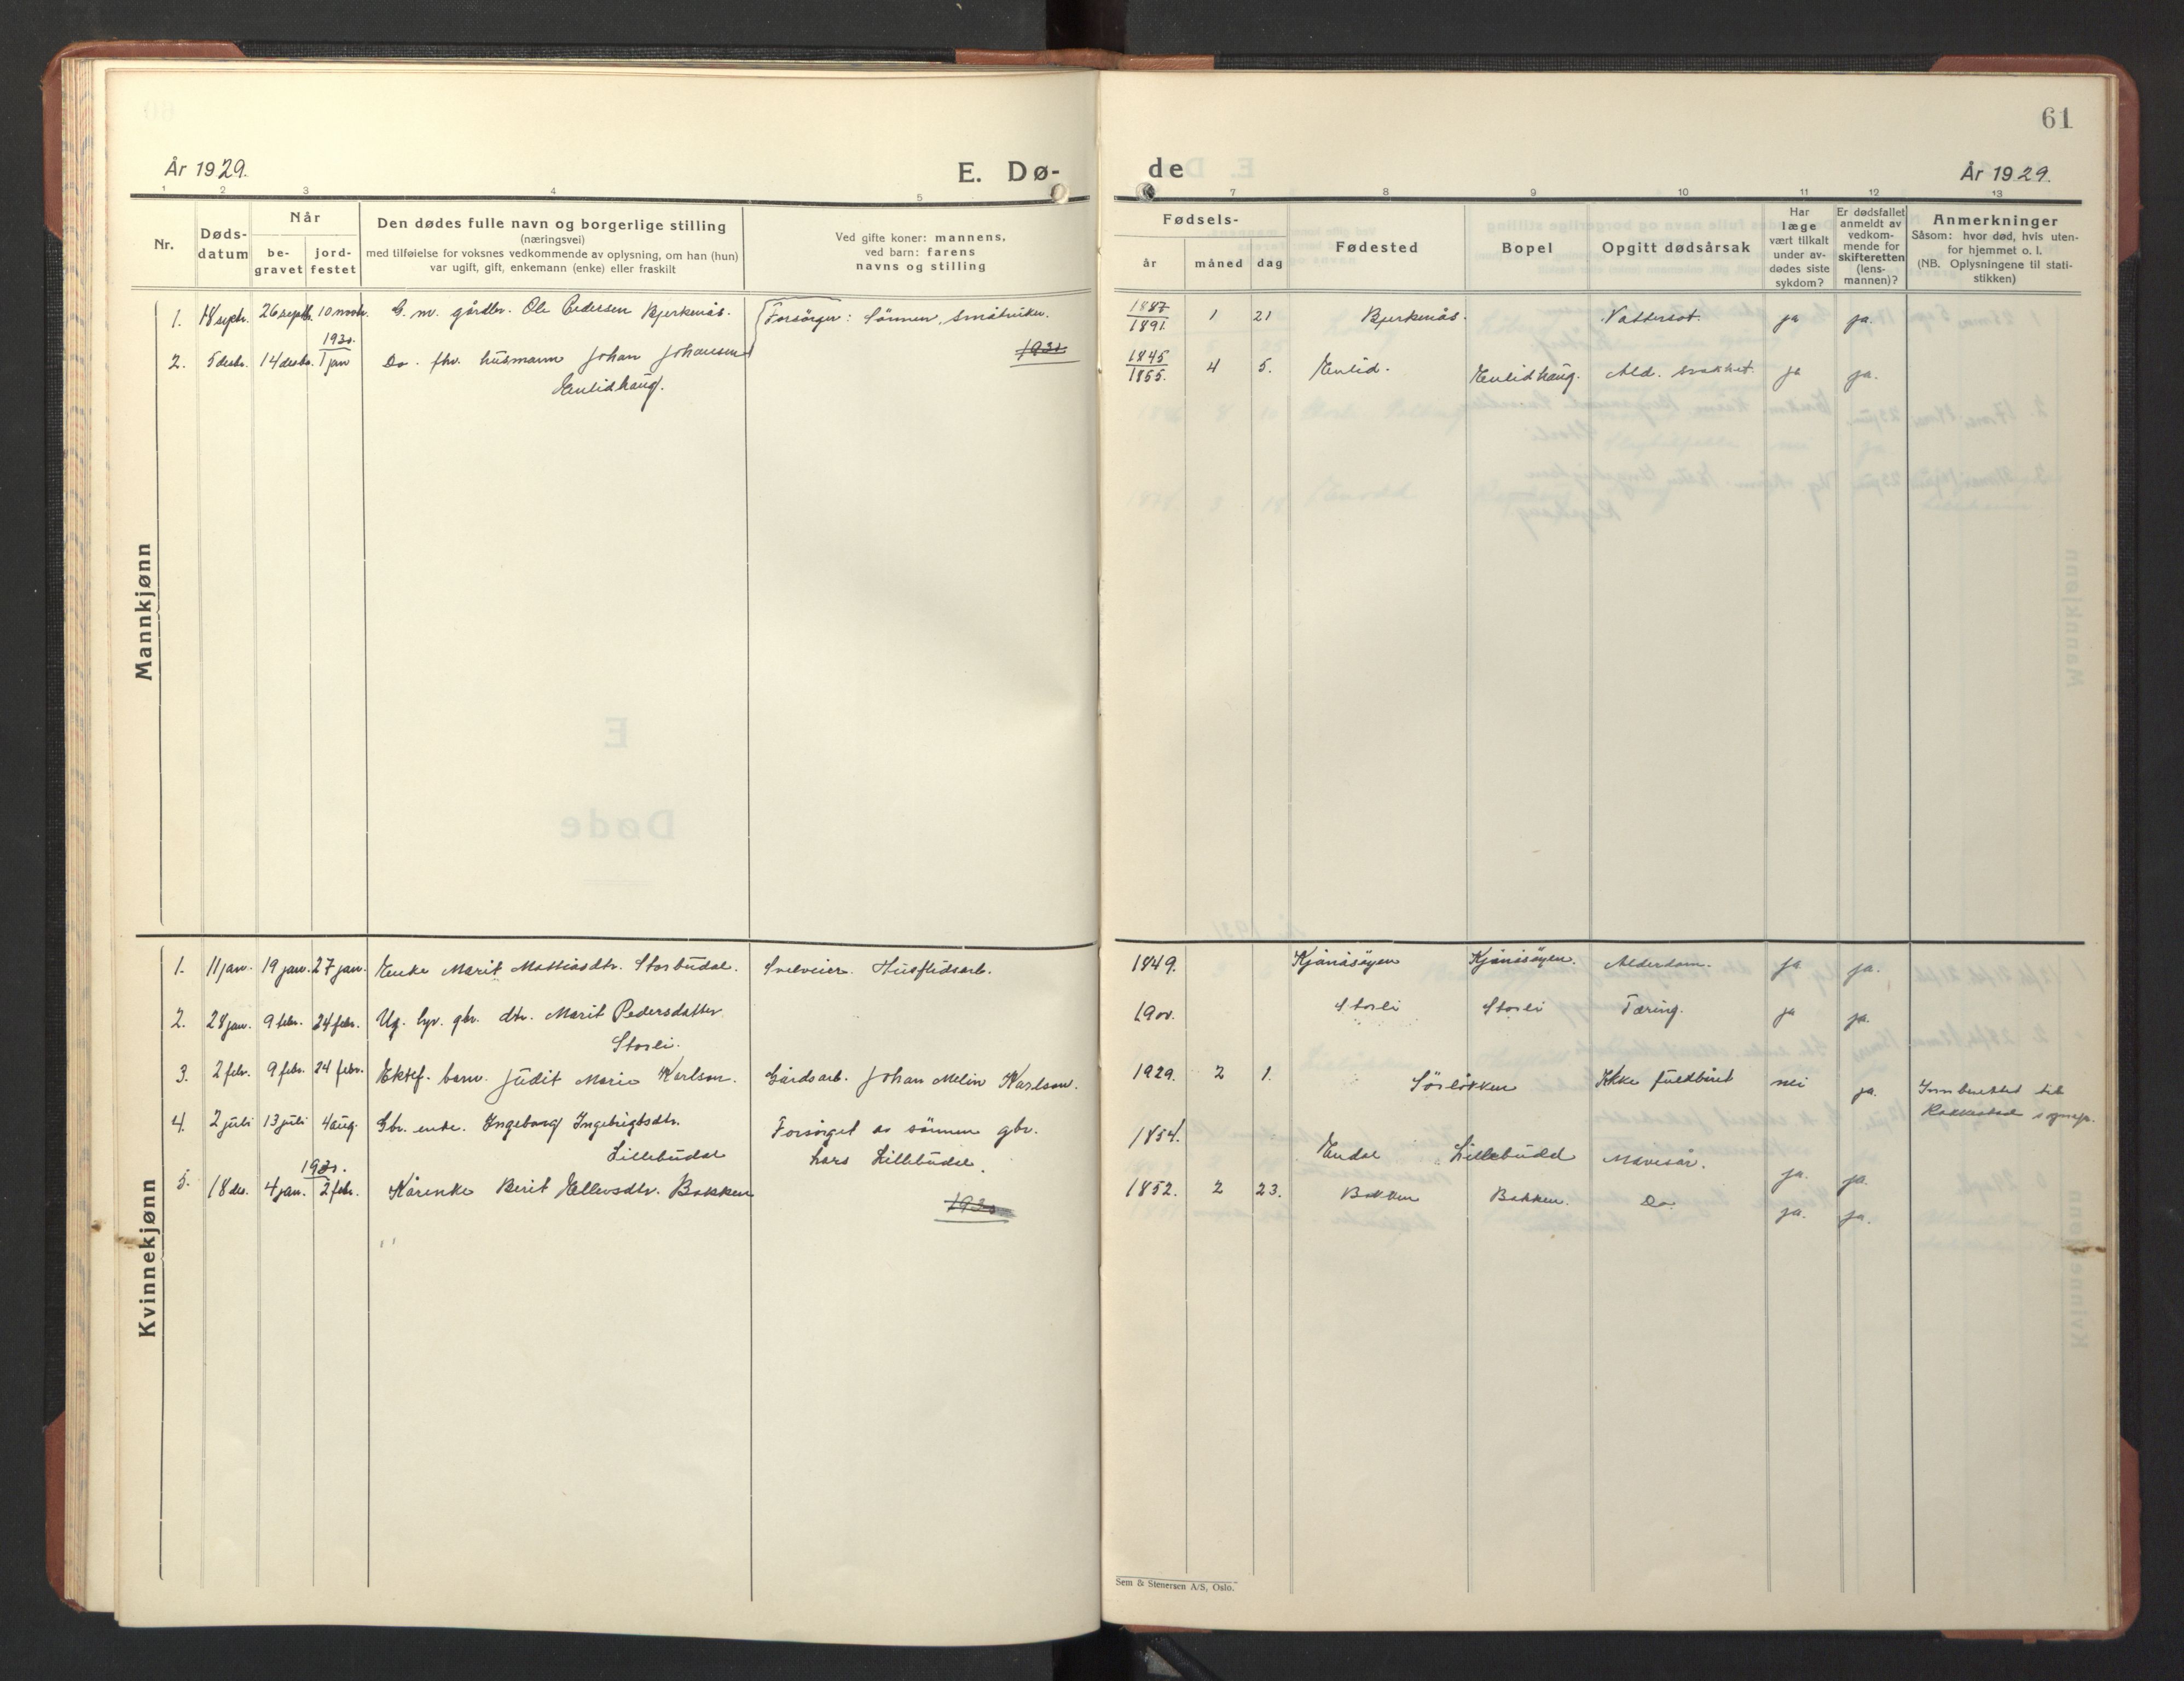 61
År 1929.
E. Dø-
de
År 1929.
1 2 3 4 5 7 8 9 10 11 12 13
Nr.
Døds-
datum
Når
be-
gravet
jord-
festet
Den dødes fulle navn og borgerlige stilling
(næringsvei)
med tilføielse for voksnes vedkommende av oplysning, om han (hun)
var ugift, gift, enkemann (enke) eller fraskilt
Ved gifte koner: mannens,
ved barn: farens
navns og stilling
Fødsels-
år måned dag
Fødested
Bopel
Opgitt dødsårsak
Har
læge
vært tilkalt
under av-
dødes siste
sykdom?
Er dødsfallet
anmeldt av
vedkom-
mende for
skifteretten
(lens-
mannen)?
Anmerkninger
Såsom: hvor død, hvis uten-
for hjemmet o. l.
(NB. Oplysningene til stati-
stikken)
Mannkjønn
1. 18 septr. 26 septb. 10 novbr. G. m. gårdbr. Ole Pedersen Bjerknås. Forsörger: Sönnen, småbruker. 1887 1891. 1 21 Bjerknås. ja ja.
1930.
2. 5 desbr. 14 desbr. 1 jan Do. fhv. husmann Johan Johansen 1930 1845 1855. 4 5. Enlid. Enlidhaug. Ald. svakhet. ja ja.
Enlidhaug.
Kvinnekjønn
1. 11 jan. 19 jan. 27 jan. Enke Marit Mattiasdtr. Storbudal. Selveier. Husflidsarb. 1849. Kjönåsöyen Kjönåsöyen. Alderdom. ja ja.
2. 28 jan. 9 febr. 24 febr. Ug. gbr. dtr. Marit Pedersdatter Storli Storli Tæring. ja ja.
Storli.
3. 2 febr. 9 febr. 24 febr. Ektef. barn. Judit Marie Karlson. Gårdsarb. Johan Melin Karlson. 1929. 2 1. Sörlökken Ikke fuldbåret nei ja. Innberettet til
sognepr.
4. 2 juli 13 juli 4 aug. Gbr. enke. Ingeborg Ingebrigtsdtr. Forsörget av sönnen gbr. 1854. Endal Lillebudal Mavesår. ja. ja.
Lillebudal Lars Lillebudal.
1930.
5. 18 des. 4 jan. 2 febr. Kårenke Berit Ellevsdtr. Bakken 1930 1852. 2 23. Bakken Bakken. Do. ja. ja.
Sem & Stenersen A/S, Oslo.